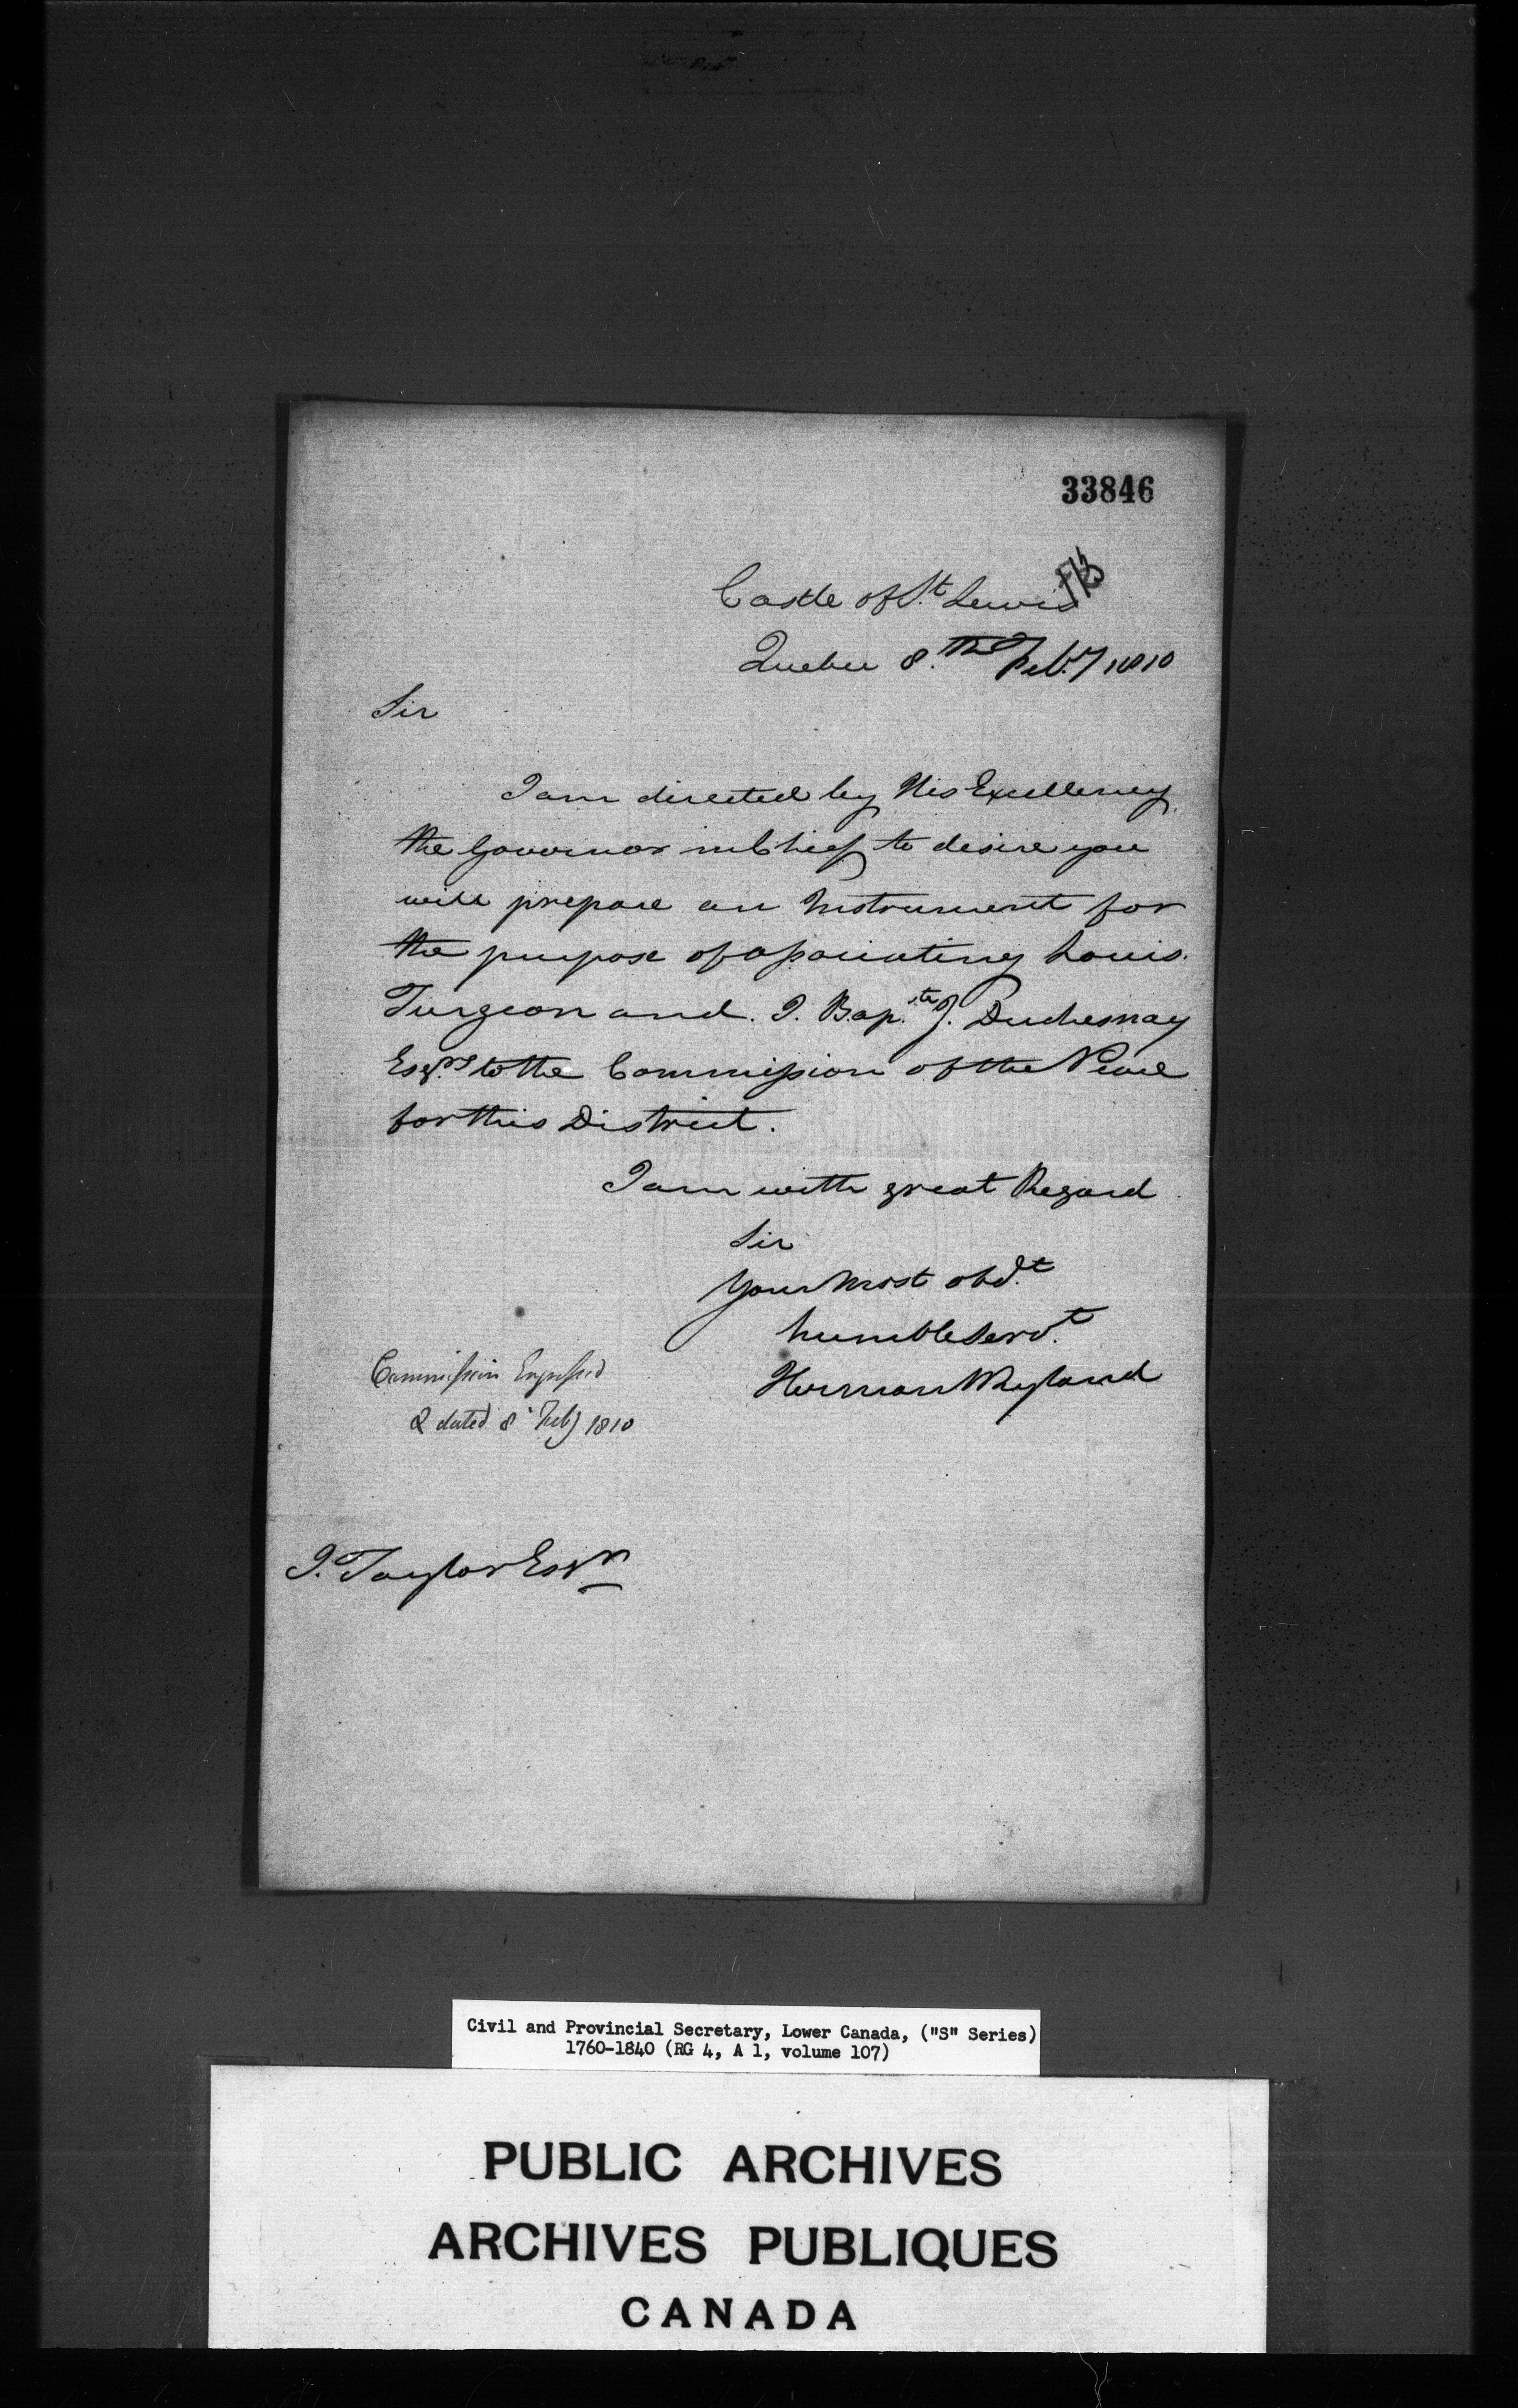 33846
Castle of St. Lewis
Quebec 8.th Feb.y 1810
Sir
I am directed by His Excellency
the Governor in Chief to desire you
will prepare an Instrument for
the purpose of associating Louis
Turgeon and J. Bap.te J. Duchesnay
Esqrs. to the Commission of the Peace
for this District.
I am with great Regard
Sir
Your Most obd.t
humble Serv.t
Herman W Ryland
Commission Engrossed
& dated 8 Feby 1810
J. Taylor Esqr
Civil and Provincial Secretary, Lower Canada, ("S" Series)
1760-1840 (RG 4, A 1, volume 107)
PUBLIC ARCHIVES
ARCHIVES PUBLIQUES
CANADA